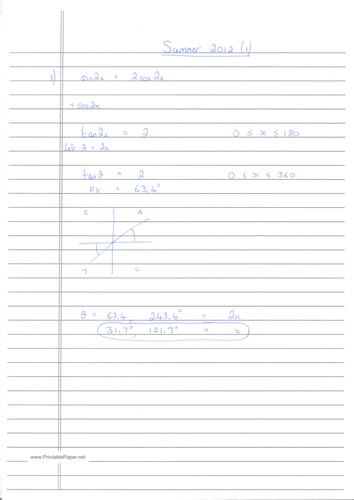 Summer 2012 (1)
1) sin2x = 2cos2x
÷ cos2x
tan2x = 2 0 ≤ x ≤ 180
Let θ = 2x
tanθ = 2 0 ≤ x ≤ 360
PV = 63.4°
S A
T C
θ = 63.4, 243.4° = 2x
31.7°, 121.7° = x
www.PrintablePaper.net